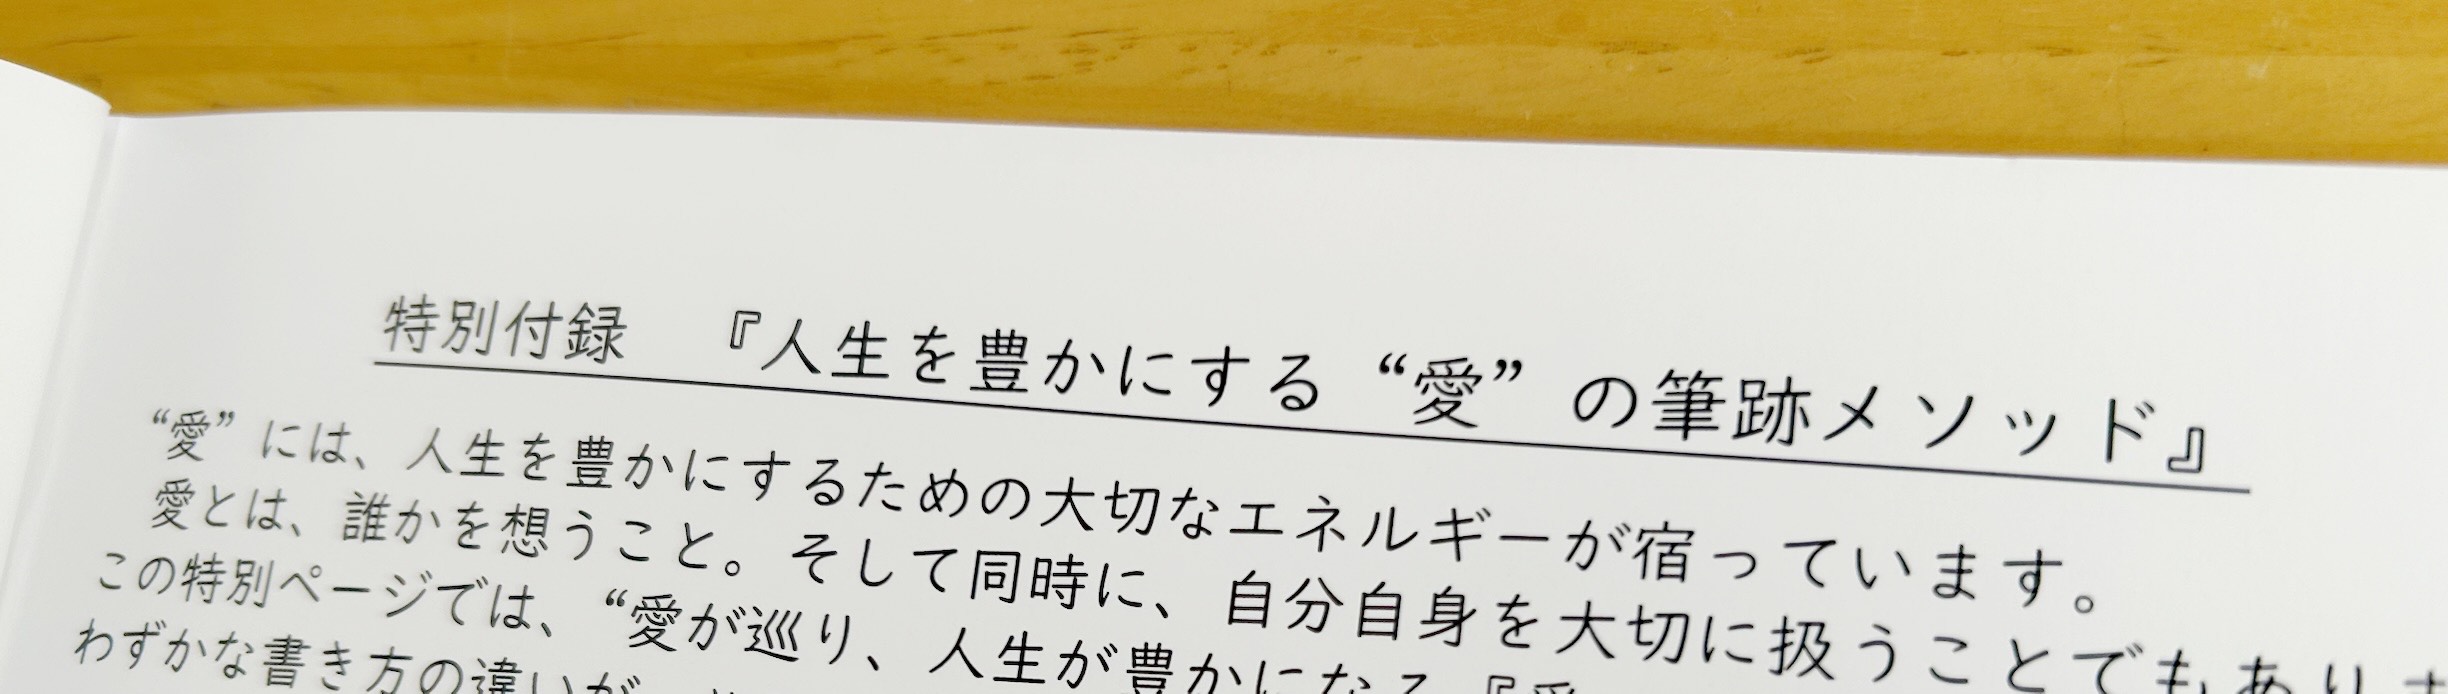 特別付録　『人生を豊かにする“愛”の筆跡メソッド』
“愛”には、人生を豊かにするための大切なエネルギーが宿っています。
愛とは、誰かを想うこと。そして同時に、自分自身を大切に扱うことでもあり
この特別ページでは、“愛が巡り、人生が豊かになる『愛
わずかな書き方の違いが